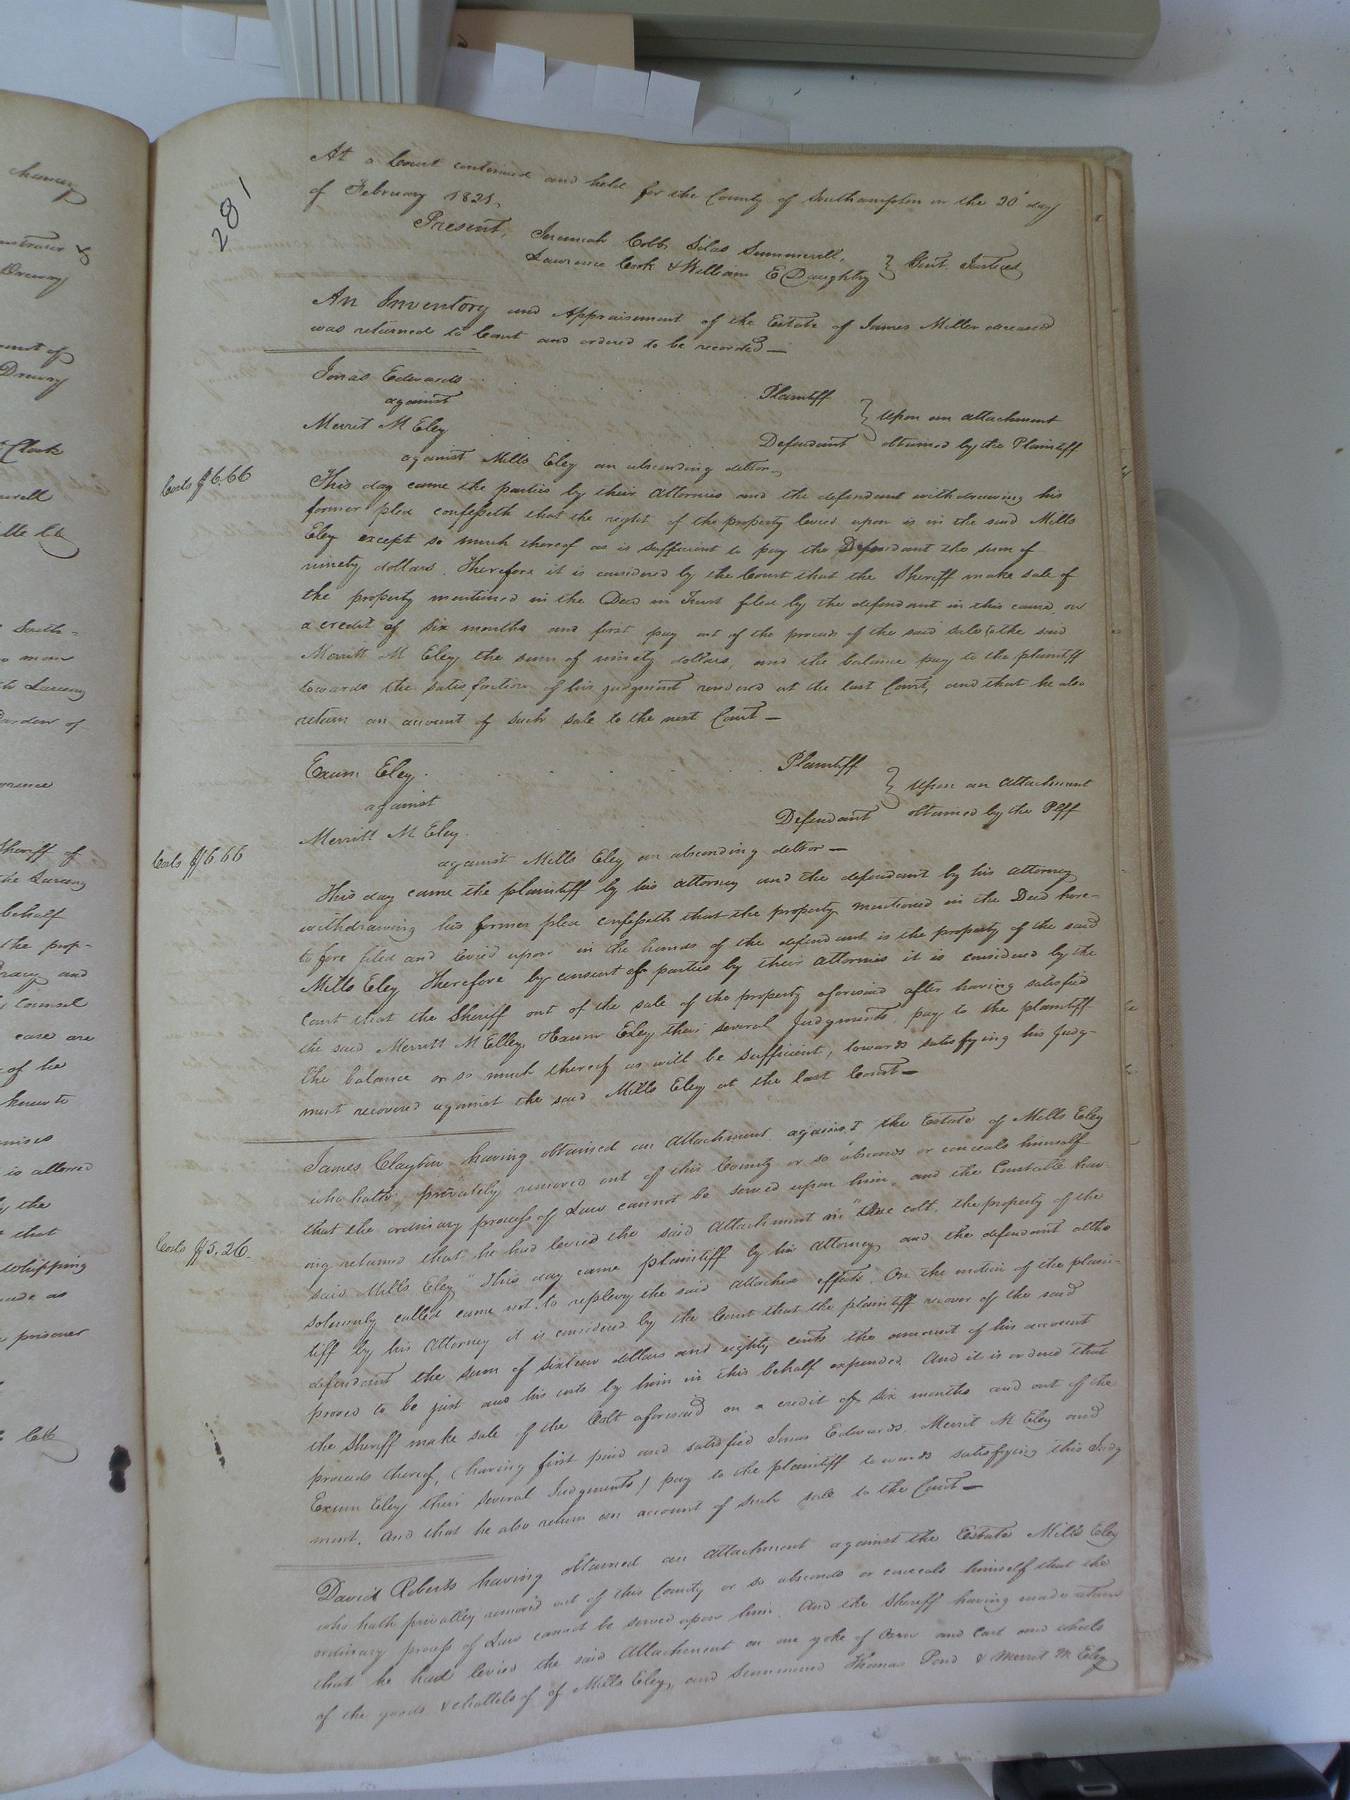 281
At a Court continued and held for the County of Southampton on the 20th day
of February 1821,
Present, Jeremiah Cobb, Silas Summerell,
Lawrence Cook & William E Daughtry } Gent. Justices
An Inventory and Appraisement of the Estate of James Miller deceased
was returned to Court and ordered to be recorded —
Jonas Edwards Plaintiff
against } Upon an attachment
Merrit M Eley Defendant obtained by the Plaintiff
against Mills Eley an absconding debtor,
Costs $6.66
This day came the parties by their Attornies and the defendant withdrawing his
former plea confesseth that the right of the property levied upon is in the said Mills
Eley except so much thereof as is sufficient to pay the Defendant the sum of
ninety dollars. Therefore it is considered by the Court that the Sheriff make sale of
the property mentioned in the Deed in Trust filed by the defendant in this cause on
a credit of six months and first pay out of the proceeds of the said sale to the said
Merritt M Eley the sum of ninety dollars, and the balance pay to the plaintiff
towards the satisfaction of his judgment rendered at the last Court, and that he also
return an account of such sale to the next Court —
Exum Eley Plaintiff
against } Upon an attachment
Merritt M Eley Defendant obtained by the Plff
against Mills Eley an absconding debtor —
Costs $6.66
This day came the plaintiff by his attorney and the defendant by his attorney
withdrawing his former plea confesseth that the property mentioned in the Deed here-
tofore filed and levied upon in the hands of the defendant is the property of the said
Mills Eley Therefore by consent of parties by their attornies it is considered by the
Court that the Sheriff out of the sale of the property aforesaid after having satisfied
the said Merritt M Elley, Exum Eley their several Judgments pay to the plaintiff
the balance or so much thereof as will be sufficient, towards satisfying his Judg-
ment recovered against the said Mills Eley at the last Court —
James Clayton having obtained an Attachment against the Estate of Mills Eley
who hath privately removed out of this County or so absconds or conceals himself
that the ordinary process of Law cannot be served upon him, and the Constable hav-
ing returned that he had levied the said Attachment on "One colt, the property of the
said Mills Eley" This day came plaintiff by his Attorney, and the defendant altho
Costs $5.26.
solemnly called came not to replevy the said attached effects. On the motion of the plain-
tiff by his Attorney it is considered by the Court that the plaintiff recover of the said
defendant the sum of sixteen dollars and eighty cents the amount of his account
proved to be just and his costs by him in this behalf expended. And it is ordered that
the Sheriff make sale of the Colt aforesaid on a credit of six months and out of the
proceeds thereof, (having first paid and satisfied Jonas Edwards, Merrit M Eley and
Exum Eley their several Judgments) pay to the plaintiff towards satisfying this Judg
ment. And that he also return an account of such sale to the Court —
David Roberts having obtained an attachment against the Estate Mills Eley
who hath privatley removed out of this County or so absconds or conceals himself that the
ordinary process of Law cannot be served upon him. And the Sheriff having made return
that he had levied the said Attachment on one yoke of Oxen and cart and wheels
of the goods & chattels of of Mills Eley, and Summoned Thomas Pond & Merrit M Eley